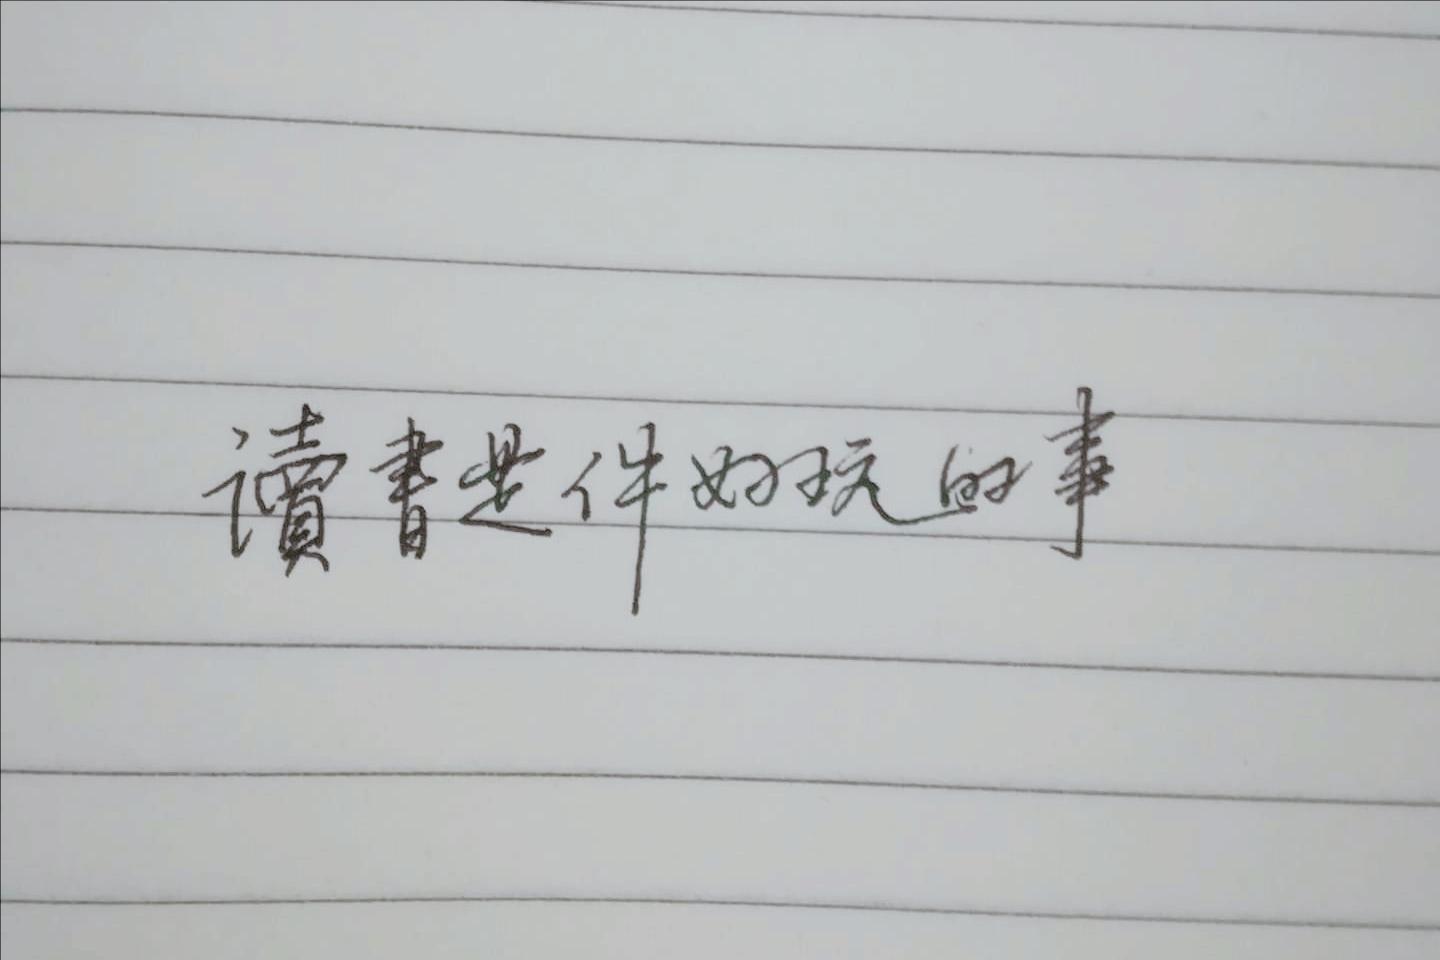 讀書是件好玩的事